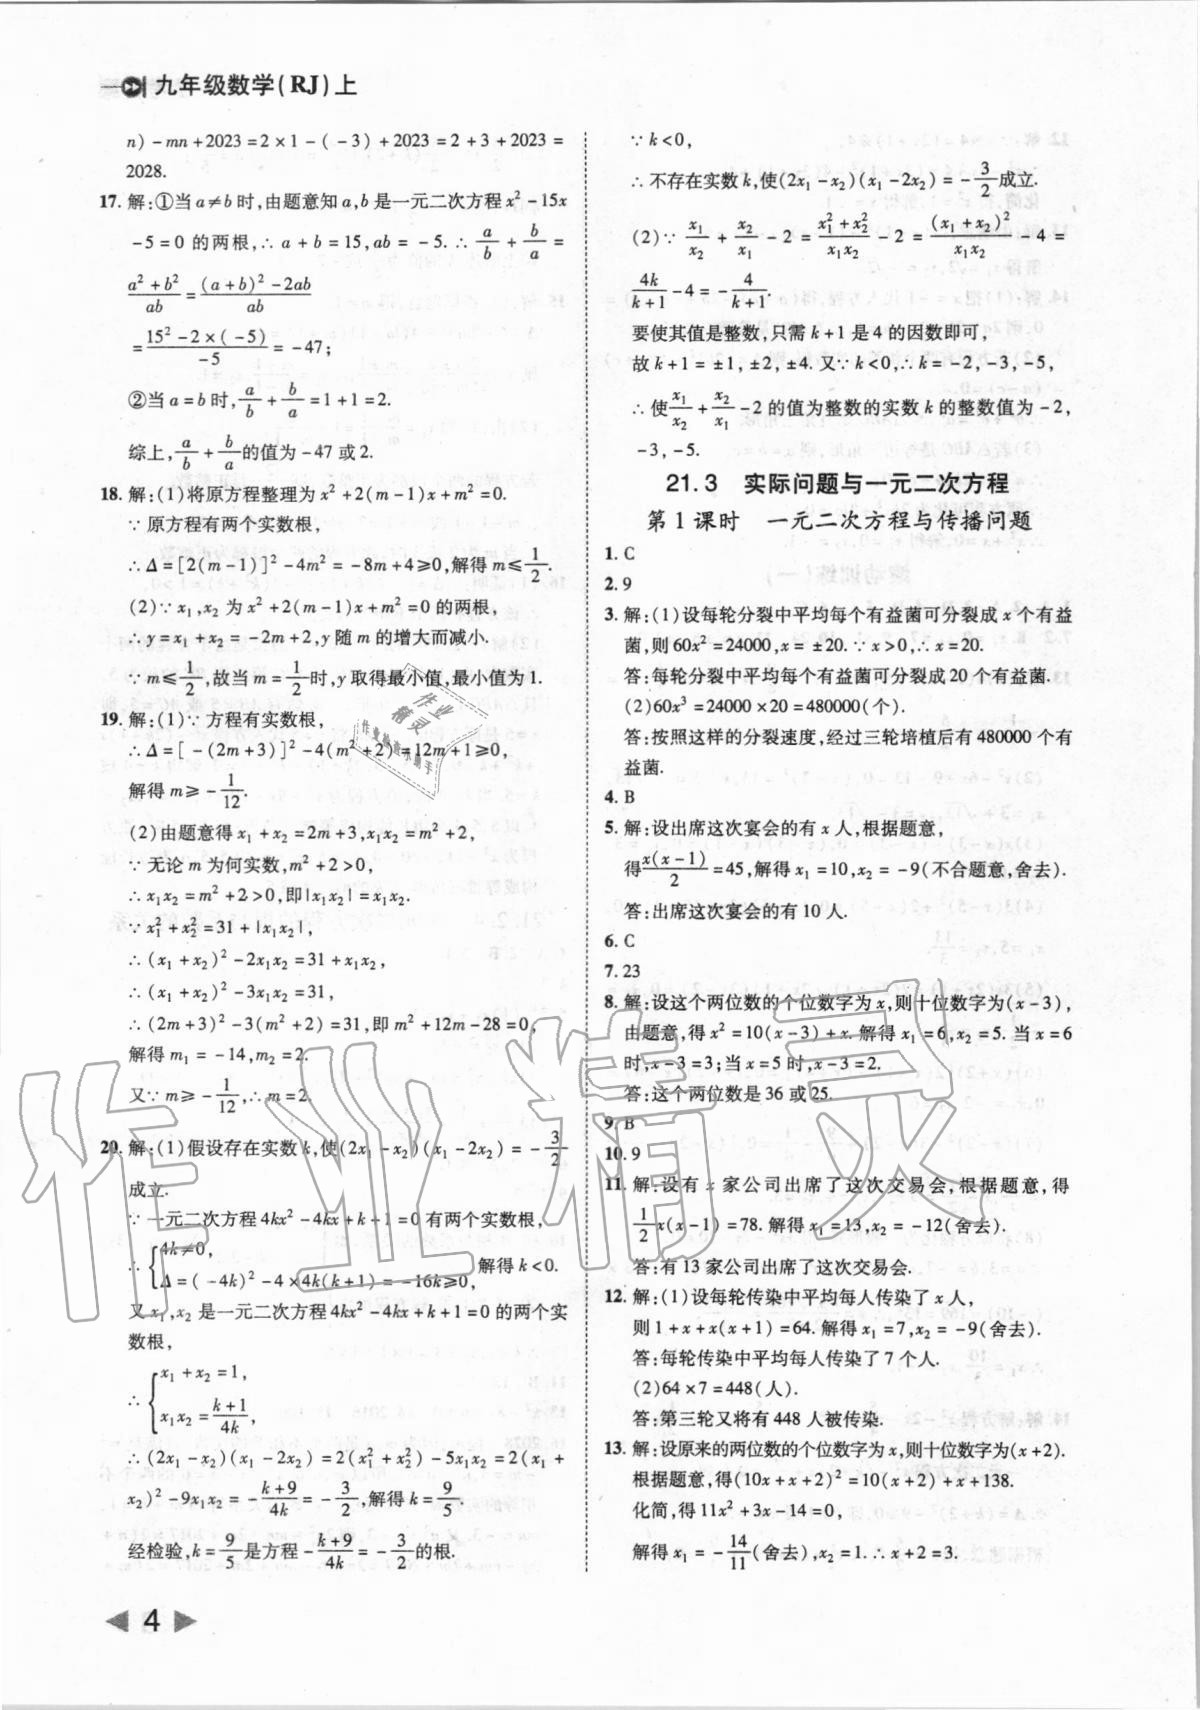 九年级数学(RJ)上
n)-mn+2023=2×1-(-3)+2023=2+3+2023=
2028.
17. 解:①当a≠b时,由题意知a,b是一元二次方程x²-15x
-5=0的两根,∴a+b=15,ab=-5.∴a/b+b/a=
(a²+b²)/ab=((a+b)²-2ab)/ab
=(15²-2×(-5))/(-5)=-47;
②当a=b时,a/b+b/a=1+1=2.
综上,a/b+b/a的值为-47或2.
18. 解:(1)将原方程整理为x²+2(m-1)x+m²=0.
∵原方程有两个实数根,
∴Δ=[2(m-1)]²-4m²=-8m+4≥0,解得m≤1/2.
(2)∵x₁,x₂为x²+2(m-1)x+m²=0的两根,
∴y=x₁+x₂=-2m+2,y随m的增大而减小.
∵m≤1/2,故当m=1/2时,y取得最小值,最小值为1.
19. 解:(1)∵方程有实数根,
∴Δ=[-(2m+3)]²-4(m²+2)=12m+1≥0,
解得m≥-1/12.
(2)由题意得x₁+x₂=2m+3,x₁x₂=m²+2,
∵无论m为何实数,m²+2>0,
∴x₁x₂=m²+2>0,即|x₁x₂|=x₁x₂.
∵x₁²+x₂²=31+|x₁x₂|,
∴(x₁+x₂)²-2x₁x₂=31+x₁x₂,
∴(x₁+x₂)²-3x₁x₂=31,
∴(2m+3)²-3(m²+2)=31,即m²+12m-28=0,
解得m₁=-14,m₂=2.
又∵m≥-1/12,∴m=2.
20. 解:(1)假设存在实数k,使(2x₁-x₂)(x₁-2x₂)=-3/2
成立.
∵一元二次方程4kx²-4kx+k+1=0有两个实数根,
∴{4k≠0,
Δ=(-4k)²-4×4k(k+1)=-16k≥0, 解得k<0.
又x₁,x₂是一元二次方程4kx²-4kx+k+1=0的两个实
数根,
∴{x₁+x₂=1,
x₁x₂=(k+1)/4k,
∴(2x₁-x₂)(x₁-2x₂)=2(x₁²+x₂²)-5x₁x₂=2(x₁+
x₂)²-9x₁x₂=-(k+9)/4k=-3/2,解得k=9/5.
经检验,k=9/5是方程-(k+9)/4k=-3/2的根.
∵k<0,
∴不存在实数k,使(2x₁-x₂)(x₁-2x₂)=-3/2成立.
(2)∵x₁/x₂+x₂/x₁-2=(x₁²+x₂²)/x₁x₂-2=(x₁+x₂)²/x₁x₂-4=
4k/(k+1)-4=-4/(k+1).
要使其值是整数,只需k+1是4的因数即可,
故k+1=±1,±2,±4.又∵k<0,∴k=-2,-3,-5,
∴使x₁/x₂+x₂/x₁-2的值为整数的实数k的整数值为-2,
-3,-5.
21.3 实际问题与一元二次方程
第1课时 一元二次方程与传播问题
1. C
2. 9
3. 解:(1)设每轮分裂中平均每个有益菌可分裂成x个有益
菌,则60x²=24000,x=±20.∵x>0,∴x=20.
答:每轮分裂中平均每个有益菌可分裂成20个有益菌.
(2)60x³=24000×20=480000(个).
答:按照这样的分裂速度,经过三轮培植后有480000个有
益菌.
4. B
5. 解:设出席这次宴会的有x人,根据题意,
得x(x-1)/2=45,解得x₁=10,x₂=-9(不合题意,舍去).
答:出席这次宴会的有10人.
6. C
7. 23
8. 解:设这个两位数的个位数字为x,则十位数字为(x-3),
由题意,得x²=10(x-3)+x.解得x₁=6,x₂=5.当x=6
时,x-3=3;当x=5时,x-3=2.
答:这个两位数是36或25.
9. B
10. 9
11. 解:设有x家公司出席了这次交易会,根据题意,得
1/2x(x-1)=78.解得x₁=13,x₂=-12(舍去).
答:有13家公司出席了这次交易会.
12. 解:(1)设每轮传染中平均每人传染了x人,
则1+x+x(x+1)=64.解得x₁=7,x₂=-9(舍去).
答:每轮传染中平均每人传染了7个人.
(2)64×7=448(人).
答:第三轮又将有448人被传染.
13. 解:设原来的两位数的个位数字为x,则十位数字为(x+2).
根据题意,得(10x+x+2)²=10(x+2)+x+138.
化简,得11x²+3x-14=0,
解得x₁=-14/11(舍去),x₂=1.∴x+2=3.
4
作业精灵
作业
精灵